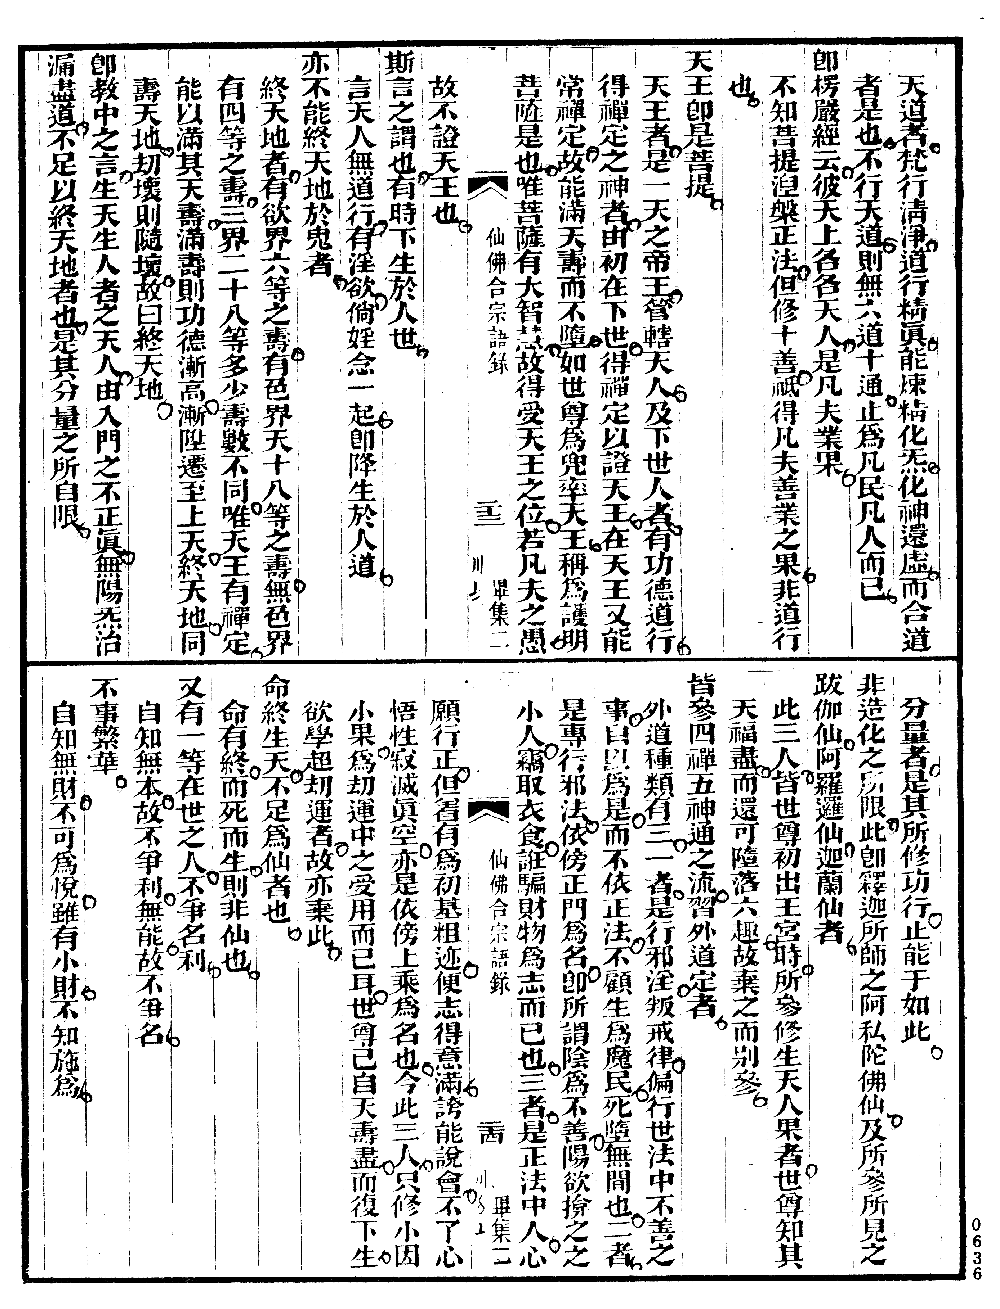 天道者梵行清淨道行精眞能煉精化炁化神還虛而合道
者是也不行天道則無六道十通止爲凡民凡人而已
卽楞嚴經云彼天上各各天人是凡夫業果
不知菩提湼槃正法但修十善祇得凡夫善業之果非道行
也
天王卽是菩提
天王者是一天之帝王管轄天人及下世人者有功德道行
得禪定之神者由初在下世得禪定以證天王在天王又能
常禪定故能滿天壽而不墮如世尊爲兜率天王稱爲護明
菩薩是也唯菩薩有大智慧故得受天王之位若凡夫之愚
仙佛合宗語錄 畢集二
故不證天王也
斯言之謂也有時下生於人世
言天人無道行有淫欲倘婬念一起卽降生於人道
亦不能終天地於鬼者
終天地者有欲界六等之壽有色界天十八等之壽無色界
有四等之壽三界二十八等多少壽數不同唯天王有禪定
能以滿其天壽滿壽則功德漸高漸陞遷至上天終天地同
壽天地劫壞則隨壞故曰終天地
卽教中之言生天生人者之天人由入門之不正眞無陽炁治
漏盡道不足以終天地者也是其分量之所自限
分量者是其所修功行止能于如此
非造化之所限此卽釋迦所師之阿私陀佛仙及所參所見之
跋伽仙阿羅邏仙迦蘭仙者
此三人皆世尊初出王宮時所參修生天人果者世尊知其
天福盡而還可墮落六趣故棄之而别參
皆參四禪五神通之流習外道定者
外道種類有三一者是行邪淫叛戒律偏行世法中不善之
事自以爲是而不依正法不顧生爲魔民死墮無間也二者
是專行邪法依傍正門爲名卽所謂陰爲不善陽欲揜之之
小人竊取衣食誑騙財物爲志而已也三者是正法中人心
仙佛合宗語錄 畢集二
願行正但畧有爲初基粗迹便志得意滿誇能說會不了心
悟性寂滅眞空亦是依傍上乘爲名也今此三人只修小因
小果爲劫運中之受用而已耳世尊已自天壽盡而復下生
欲學超劫運者故亦棄此
命終生天不足爲仙者也
命有終而死而生則非仙也
又有一等在世之人不爭名利
自知無本故不爭利無能故不爭名
不事繁華
自知無財不可爲悅雖有小財不知施爲
0636